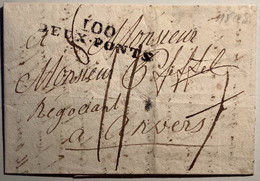 100
DEUX-PONTS
A Monsieur
Monsieur
Negociant
a Anvers